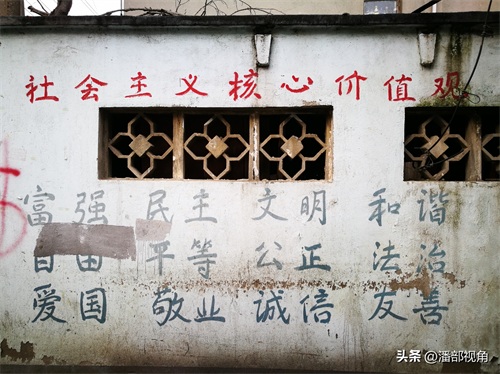 社会主义核心价值观
富强 民主 文明 和谐
自由 平等 公正 法治
爱国 敬业 诚信 友善
头条 @潘部视角